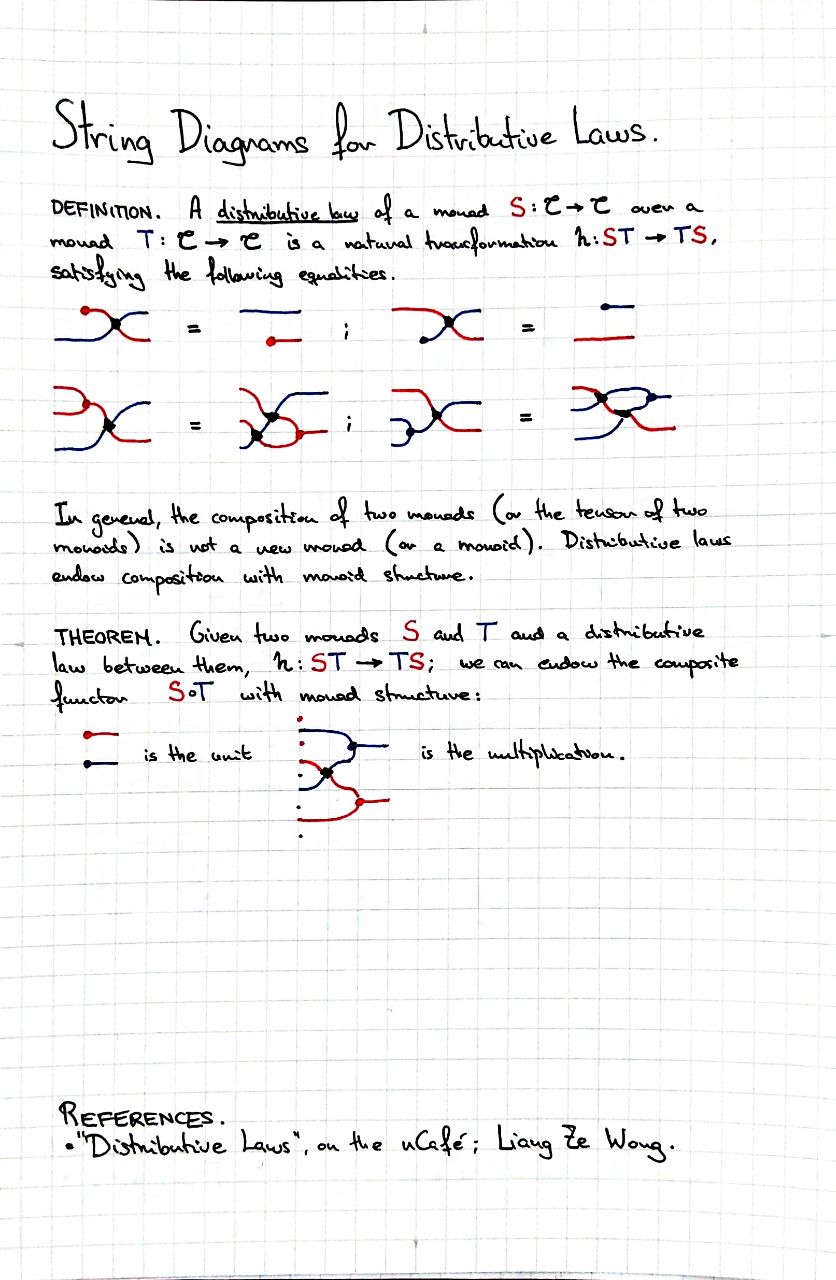 String Diagrams for Distributive Laws.
DEFINITION. A distributive law of a monad S : C → C over a
monad T : C → C is a natural transformation h : ST → TS,
satisfying the following equalities.
= ; =
= ; =
In general, the composition of two monads (or the tensor of two
monoids) is not a new monad (or a monoid). Distributive laws
endow composition with monoid structure.
THEOREM. Given two monads S and T and a distributive
law between them, h : ST → TS; we can endow the composite
functor S∘T with monad structure:
is the unit is the multiplication.
REFERENCES.
• "Distributive Laws", on the nCafé; Liang Ze Wong.